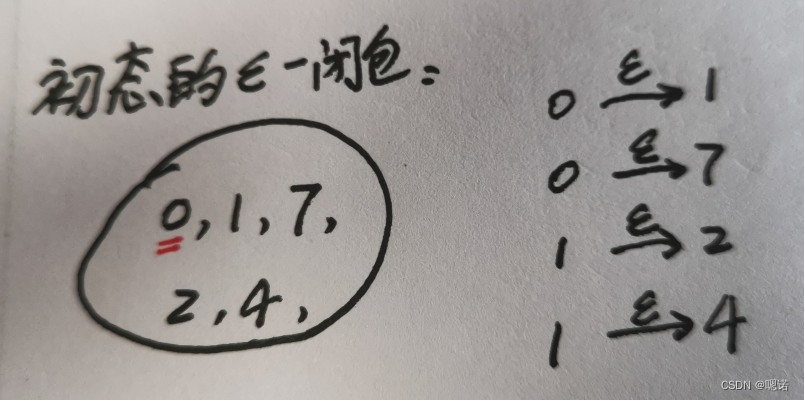 初态的ε-闭包:
0,1,7,
2,4,
0 ε→ 1
0 ε→ 7
1 ε→ 2
1 ε→ 4
CSDN @嗯诺